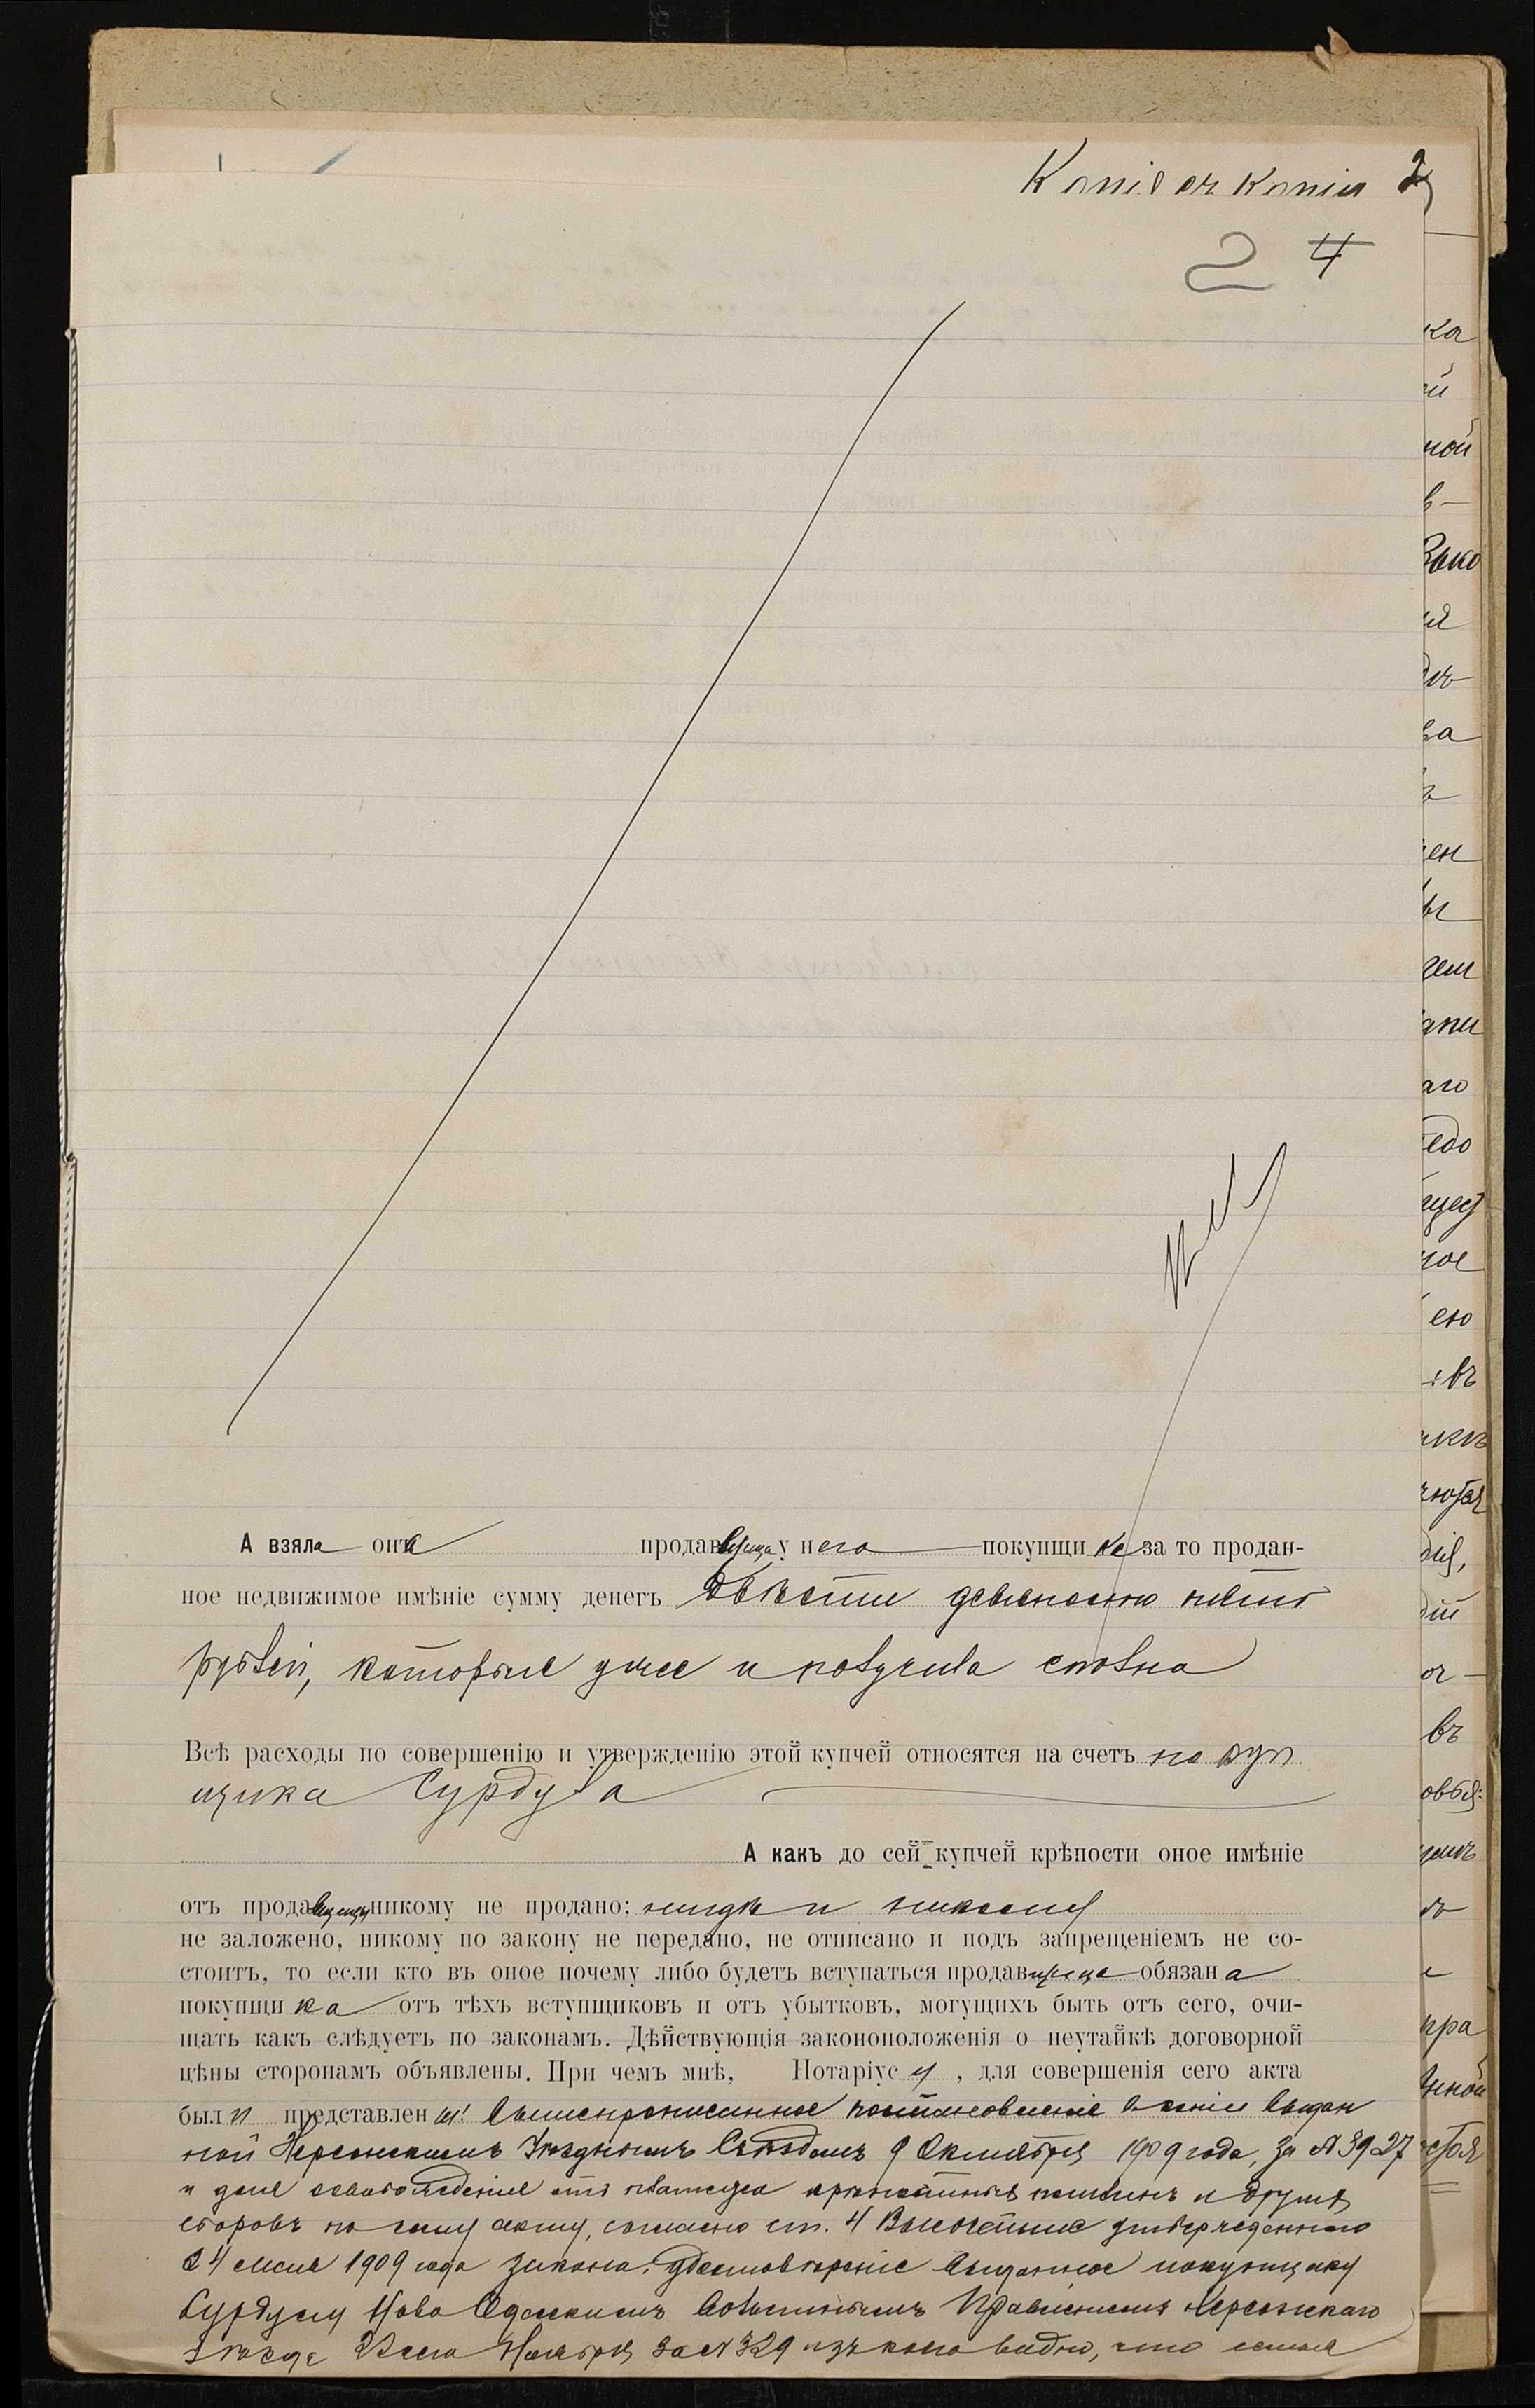 Копія съ копіи 2
2 4
А взяла она продавщица у него покупщика за то продан-
ное недвижимое имѣніе сумму денегъ двѣсти девяносто пять
рублей, которые уже и получила сполна
Всѣ расходы по совершенію и утвержденію этой купчей относятся на счетъ покуп
щика Сурдула
А какъ до сей купчей крѣпости оное имѣніе
отъ продавщицы никому не продано; нигдѣ и никому
не заложено, никому по закону не передано, не отписано и подъ запрещеніемъ не со-
стоитъ, то если кто въ оное почему либо будетъ вступаться продавщица обязана
покупщика отъ тѣхъ вступщиковъ и отъ убытковъ, могущихъ быть отъ сего, очи-
щать какъ слѣдуетъ по законамъ. Дѣйствующія законоположенія о неутайкѣ договорной
цѣны сторонамъ объявлены. При чемъ мнѣ, Нотаріусу, для совершенія сего акта
были представлены: вышепрописанное постановленіе въ копіи выдан
ной Херсонскимъ Уѣзднымъ Съѣздомъ 9 Октября 1909 года, за № 3927
и для освобожденія отъ платежа крѣпостныхъ пошлинъ и другихъ
сборовъ по сему акту, согласно ст. 4 Высочайше утвержденнаго
24 Мая 1909 года закона, удостовѣреніе выданное покупщику
Сурдулу Ново Одесскимъ Волостнымъ Правленіемъ Херсонскаго
уѣзда Ноября за № 329 изъ коего видно, что